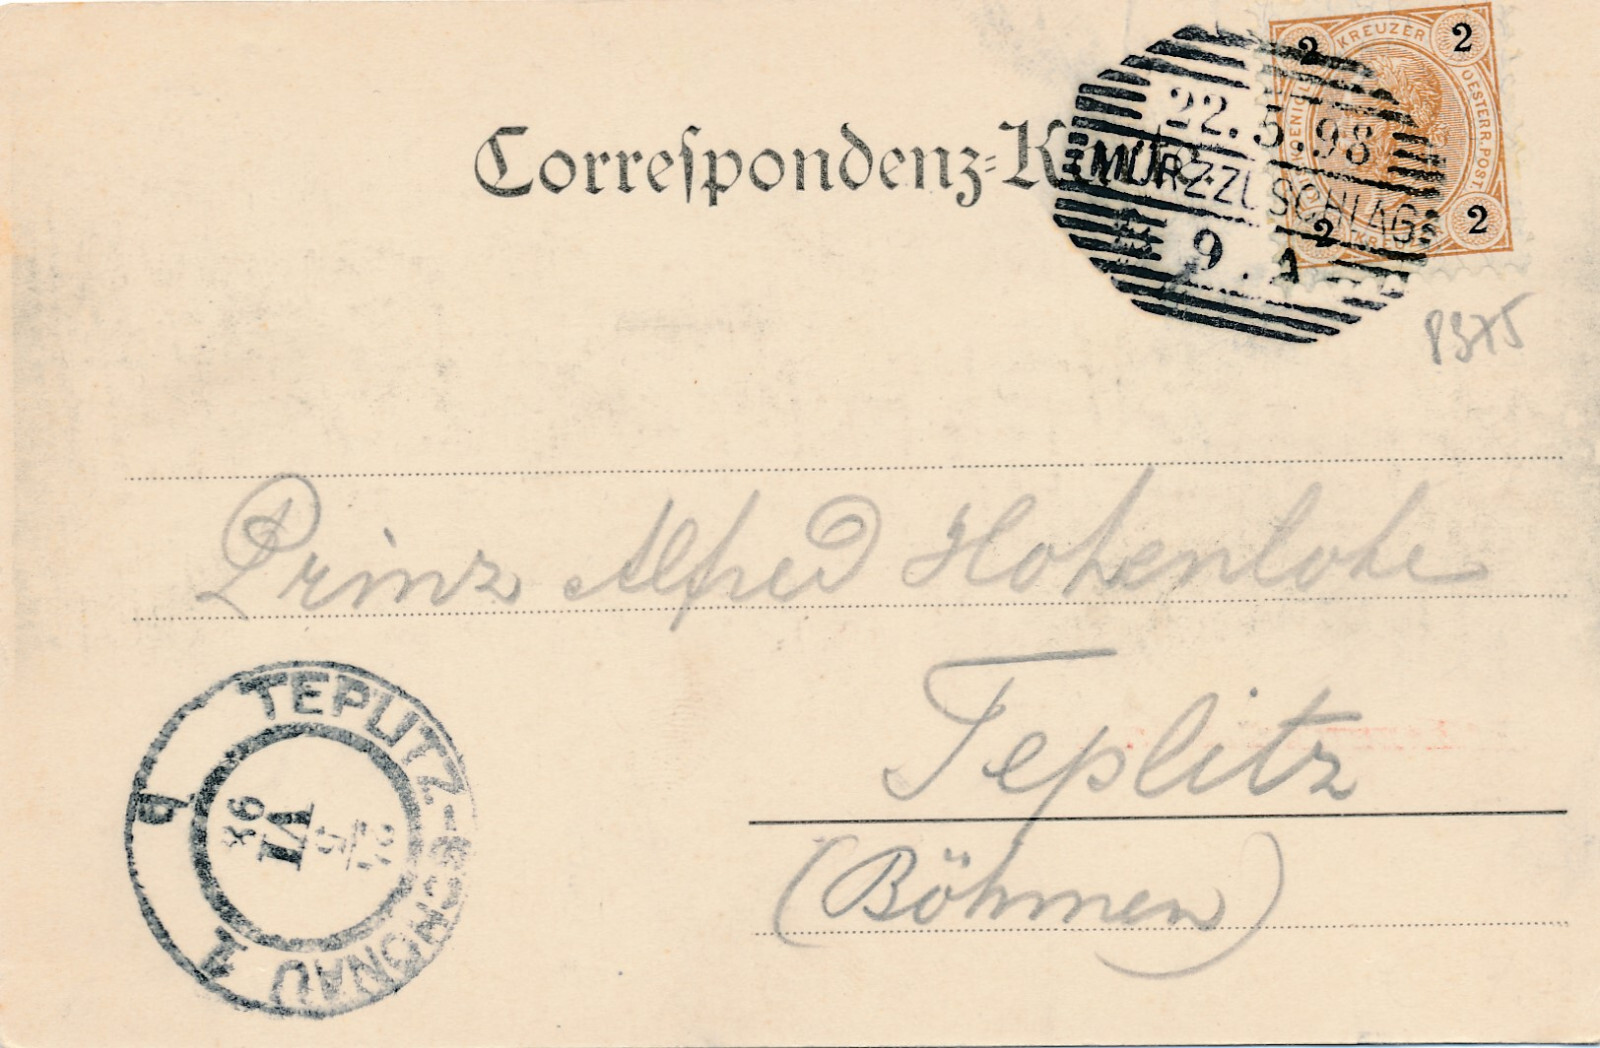 Correspondenz-Karte.
2 KREUZER 2
KAIS. KOENIGL. OESTERR. POST.
2 KREUZER 2
22.5.98
MÜRZZUSCHLAG
9. A
P375
Prinz Alfred Hohenlohe
Teplitz
(Böhmen)
TEPLITZ-SCHÖNAU 1
98